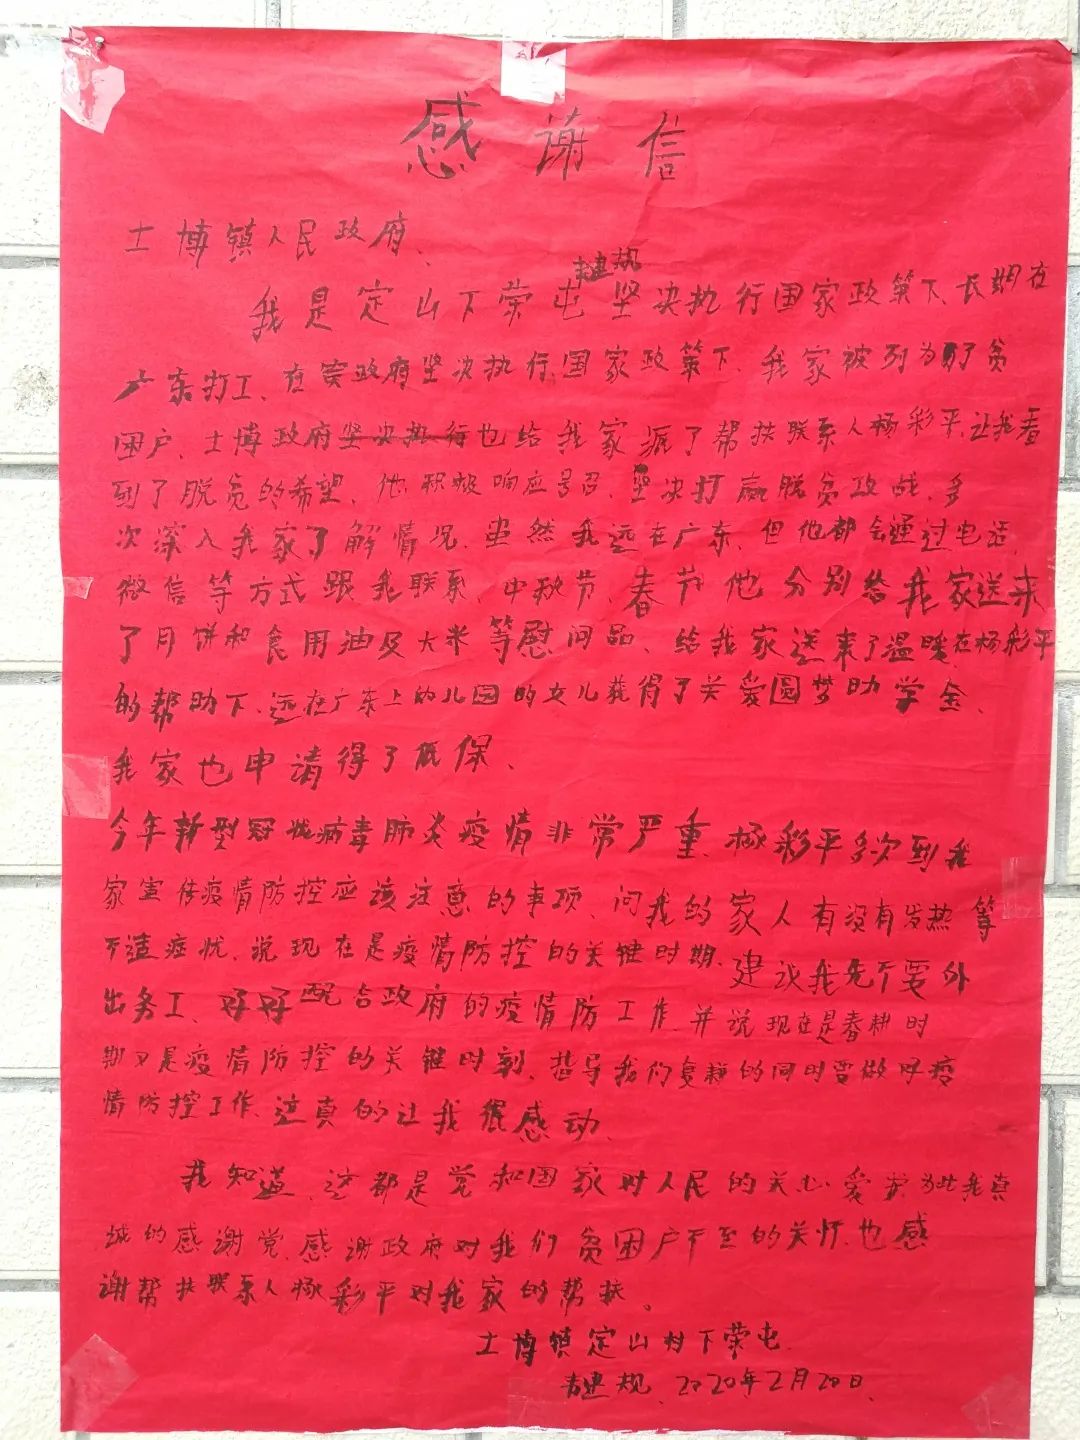 感谢信
士博镇人民政府、
建规
我是定山下荣屯 坚决执行国家政策下、长期在
广东打工、在党政府坚决执行国家政策下、我家被列为了贫
困户、士博政府坚决执行也给我家派了帮扶联系人杨彩平、让我看
到了脱贫的希望、他积极响应号召、坚决打赢脱贫攻战、多
次深入我家了解情况、虽然我远在广东、但他都会通过电话、
微信等方式跟我联系、中秋节、春节他分别给我家送来
了月饼和食用油及大米等慰问品、给我家送来了温暖在杨彩平
的帮助下、远在广东上幼儿园的女儿获得了关爱圆梦助学金、
我家也申请得了低保、
今年新型冠状病毒肺炎疫情非常严重、杨彩平多次到我
家宣传疫情防控应该注意的事项、问我的家人有没有发热等
不适症状、说现在是疫情防控的关键时期、建议我先不要外
出务工、好好配合政府的疫情防工作、并说现在是春耕时
期又是疫情防控的关键时刻、指导我们复耕的同时要做好疫
情防控工作、这真的让我很感动、
我知道、这都是党和国家对人民的关心爱护为此我真
诚的感谢党、感谢政府对我们贫困户下至的关怀、也感
谢帮扶联系人杨彩平对我家的帮扶。
士博镇定山村下荣屯
建规、2020年2月20日、